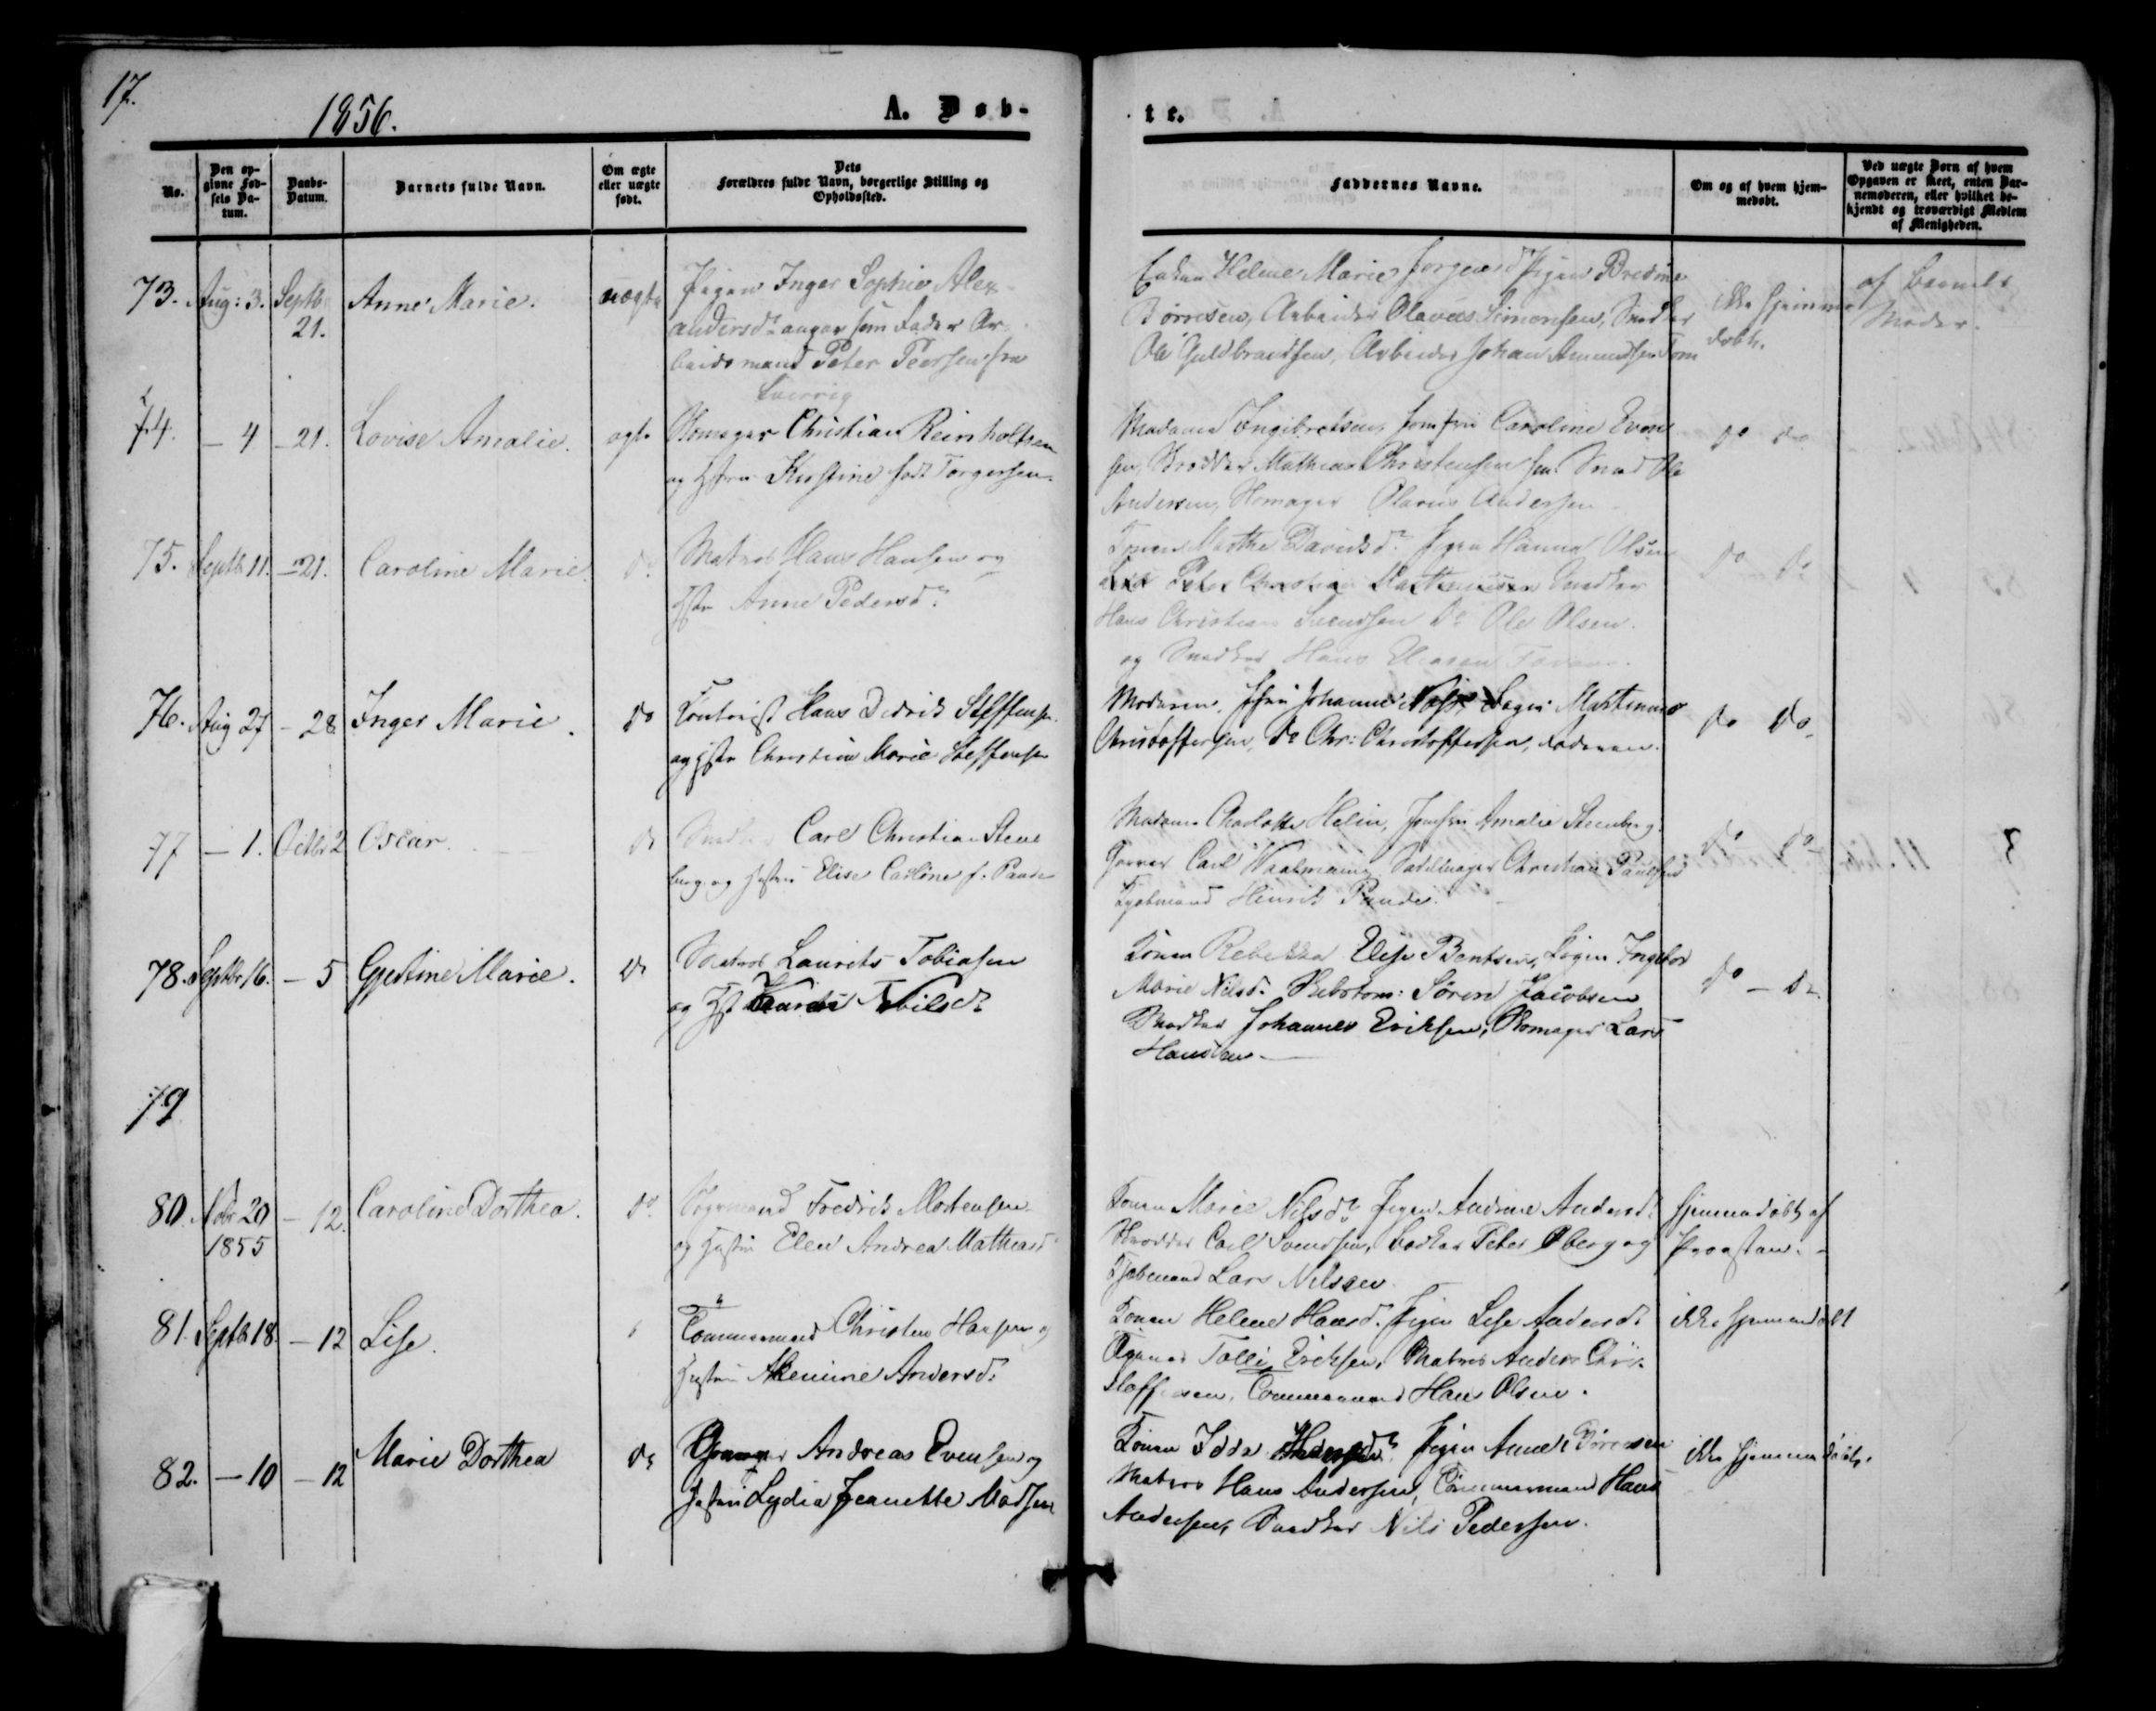 17.
1856.
A. Døb-
te.
No.
Den op-
givne Fød-
sels Da-
tum.
Daabs-
Datum.
Barnets fulde Navn.
Om ægte
eller uægte
født.
Dets
Forældres fulde Navn, borgerlige Stilling og
Opholdssted.
Faddernes Navne.
Om og af hvem hjem-
medøbt.
Ved uægte Børn af hvem
Opgaven er skeet, enten Bar-
nemoderen, eller hvilket be-
kjendt og troværdigt Medlem
af Menigheden.
73. Aug: 3. Septb 21. Anne Marie. uægte
Pigen Inger Sophie Alex-
andersdr angav som Fader Ar-
beidsmand Peter Peersen fra
Sverrig
Enken Helene Marie Jørgensd Pigen Bredine
Børresen, Arbeider Olavus Simensen, Snedker
Ole Guldbrandsen, Arbeider Johan Amundsen
ikke hjemme
døbt.
af Barnets
Moder.
74. – 4 – 21. Lovise Amalie. ægte
Skomager Christian Reinholtsen
og Hstru Kirstine født Torgersen.
Madame Ingibretsen, Jomfru Caroline Even
sen, Skrædder Mathias Christensen, Ole
Andersen, Skomager Olavus Andersen
do do
75. Septb 11. – 21. Caroline Marie. do
Matros Hans Hansen og
Hstru Anne Pedersdr
Konen Marthe Davidsdr Pigen Hanna Olsen
Peter Christian Snedker
Hans Christian Svendsen do Ole Olsen.
og Snedker Hans
do do
76. Aug 27 – 28 Inger Marie. do
Hans Didrik Steffensen
og Hstru Christine Marie Steffensen
Moderen, Jfru Johanne Martinus
Christoffersen, do Chr: Christoffersen, Faderen.
do do
77 – 1. Octbr 2 Oscar. do
Carl Christian Steen
berg og Hustru Elise Carline f. Paude
Madame Charlotte Helin, Jomfru Amalie Steenberg.
Garver Carl Sadelmager Christian Paulsen
Kjøbmand Henrik Paude.
do do
78. Septbr 16. – 5 Gjestine Marie. do
Matros Laurits Tobiasen
og Hst Nilsdr
Konen Rebekka Elise Bentsen, Pigen Ingebor
Marie Nilsd. Skibstøm: Søren Jacobsen
Snedker Johannes Eriksen, Skomager Lars
Hansen
do – do
79
80. Nobr 20 1855 – 12. Caroline Dorthea. do
Fredrik Mortensen
og Hustru Elen Andrea Mathiasd
Konen Marie Nilsdr Pigen Andrine Andersd.
Skrædder Carl Svendsen, Bødker Peter Øberg og
Kjøbmand Lars Nilsen
hjemmedøbt af
81. Septb 18. – 12 Lise.
Tømmermand Christen Hansen og
Hustru Andersd:
Konen Helene Hansd. Pigen Lise Andersd.
Tolli Eriksen, Matros Anders Chri-
stoffersen, Tømmermand Hans Olsen.
ikke hjemmedøbt
82. – 10 – 12 Marie Dorthea do
Andreas Evensen og
Hustru Lydia Jeanette Madsen
Konen Idda Pigen Anne Børresen
Matros Hans Andersen, Tømmermand Hans
Andersen, Snedker Nils Pedersen.
ikke hjemmedøbt.